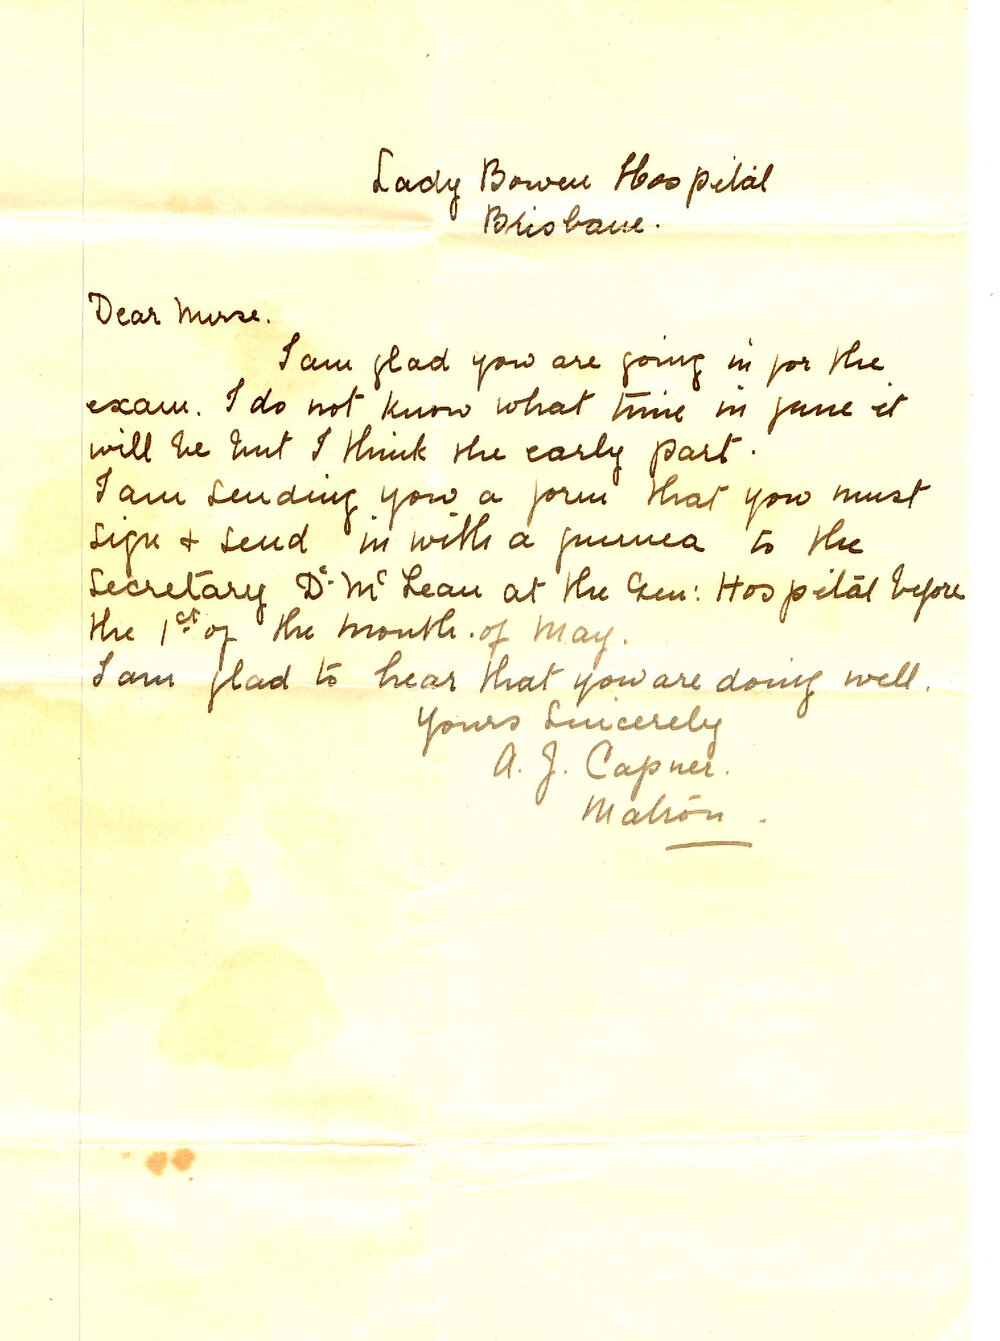 Lady Bowen Hospital
Brisbane.
Dear Nurse.
I am glad you are going in for the
exam. I do not know what time in June it
will be but I think the early part.
I am sending you a form that you must
sign + send in with a guinea to the
Secretary Dr. Mc Lean at the Gen: Hospital before
the 1st of the month. of May.
I am glad to hear that you are doing well.
Yours Sincerely
A. J. Capner.
Matron.